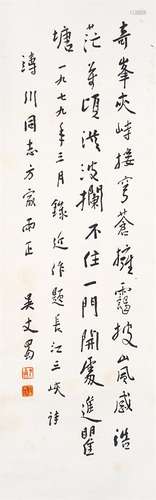 奇峯夾峙接穹蒼擁靄披嵐感浩
茫萬頃洪波攔不住一門開處進瞿
塘
一九七九年三月錄近作題長江三峽詩
溥川同志方家兩正
吴丈蜀